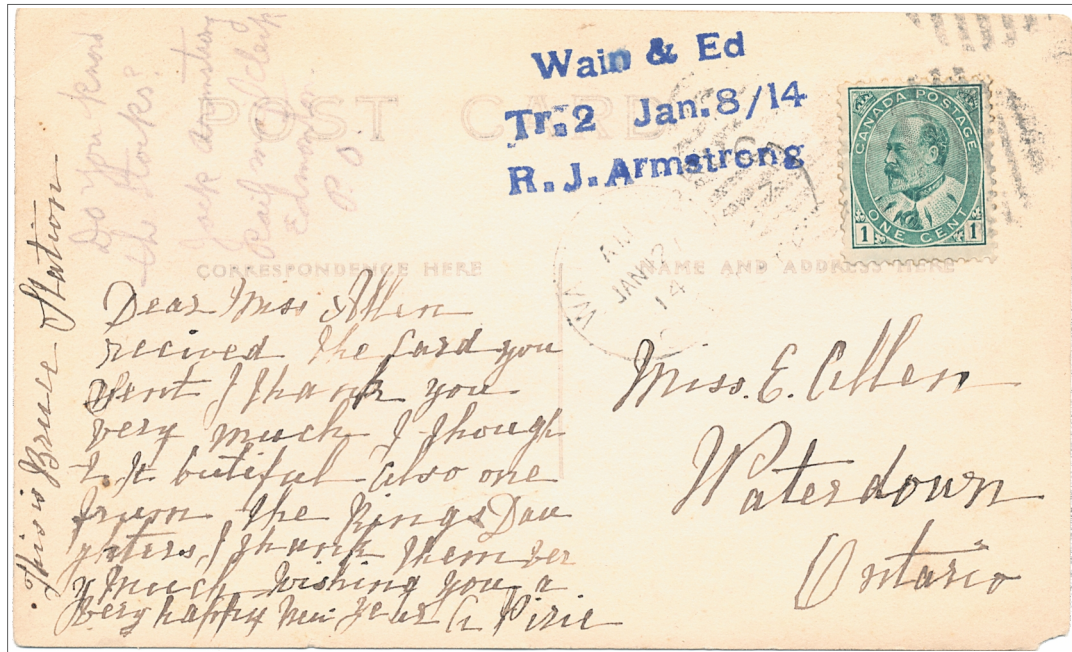 Do you know
the Stocks?
Jack Armstrong
Railway Clerk
Edmonton
P.O.
POST CARD
Wain & Ed
Tr. 2 Jan. 8/14
R. J. Armstrong
CANADA POSTAGE
ONE CENT
1 1
AM
JAN 12
14
W
CORRESPONDENCE HERE
NAME AND ADDRESS HERE
This is Bruce Station
Dear Miss Allen
recived the Card you
sent I thank you
very much I though
t it butiful also one
frum the Kings Dau
ghters I thank them ver
y much wishing you a
very happy New Year A Pirie
Miss. E. Allen
Waterdown
Ontario